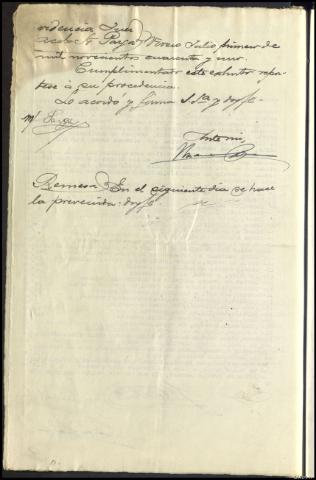 videncia Juez
Payá Vivero Julio primero de
mil novecientos cuarenta y uno.
Cumplimentado este exhorto repor-
tese á su procedencia.
Lo acordó y firma S Sª y doy fe.
M/ Payá
Ante mi,
Remesa. En el siguiente dia se hace
la prevenida. doy fe.